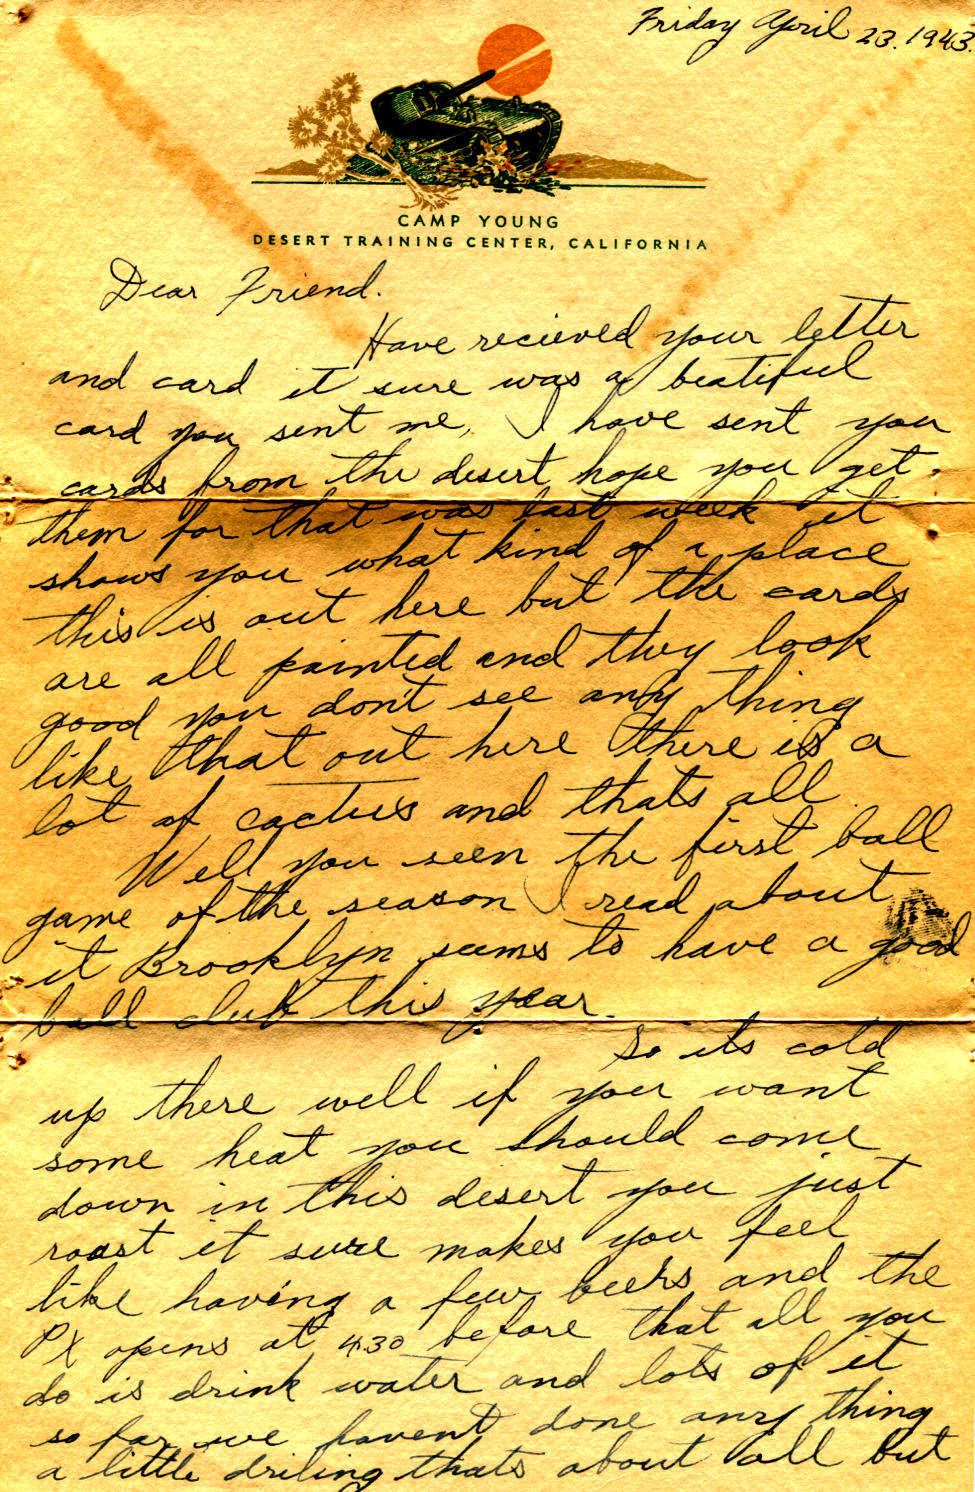 Friday April 23. 1943.
CAMP YOUNG
DESERT TRAINING CENTER, CALIFORNIA
Dear Friend.
Have recieved your letter
and card it sure was a beatiful
card you sent me, I have sent you
cards from the desert hope you get
them for that was last week it
shows you what kind of a place
this is out here but the cards
are all painted and they look
good you don't see any thing
like that out here there is a
lot of cactus and thats all.
Well you seen the first ball
game of the season I read about
it Brooklyn seems to have a good
ball club this year.
So its cold
up there well if you want
some heat you should come
down in this desert you just
roast it sure makes you feel
like having a few beers and the
PX opens at 4.30 before that all you
do is drink water and lots of it
so far we havent done any thing
a little driling thats about all but